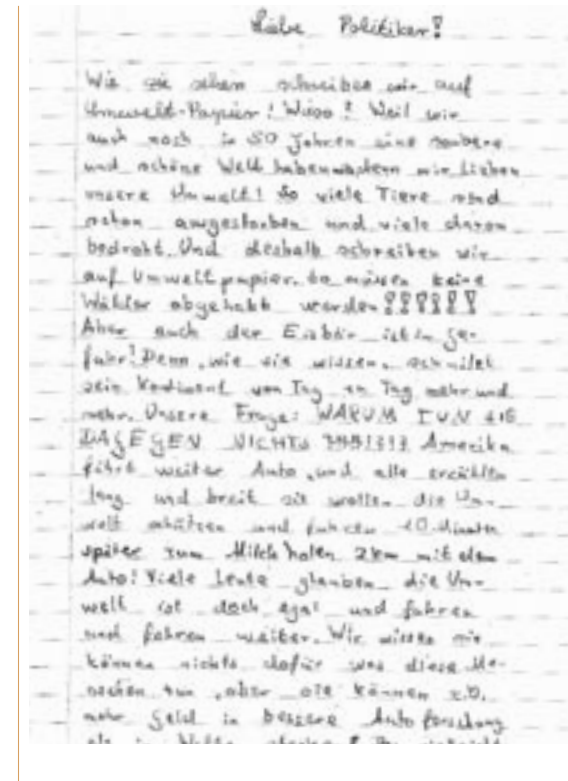 Liebe Politiker!
Wie sie sehen schreiben wir auf
Umwelt-Papier! Wieso? Weil wir
auch noch in 50 Jahren eine saubere
und schöne Welt haben wir lieben
unsere Umwelt! So viele Tiere sind
schon ausgestorben und viele davon
bedroht. Und deshalb schreiben wir
auf Umweltpapier. So müssen keine
Wälder abgeholzt werden!!!!!!
Aber auch der Eisbär ist in Ge-
fahr! Denn, wie sie wissen, schmilzt
sein Kontinent von Tag zu Tag mehr und
mehr. Unsere Frage: WARUM TUN SIE
DAGEGEN NICHTS Amerika
fährt weiter Auto, und alle erzählen
lang und breit sie wollen die Um-
welt schützen und fahren 10 Minuten
später zum Milch holen 2km mit dem
Auto! Viele Leute glauben die Um-
welt ist doch egal und fahren
und fahren weiter. Wir wissen sie
können nichts dafür was diese Me-
nschen tun, aber sie können z.B.
mehr Geld in bessere Autoforschung
als in